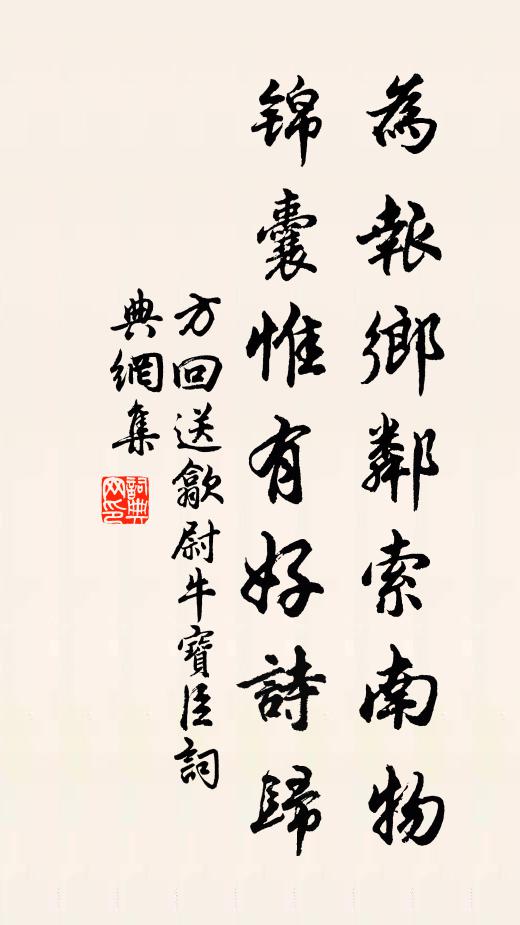 為報鄉鄰索南物
錦囊惟有好詩歸
方回送歙尉牛寶臣詞
典網集
詞典
网印